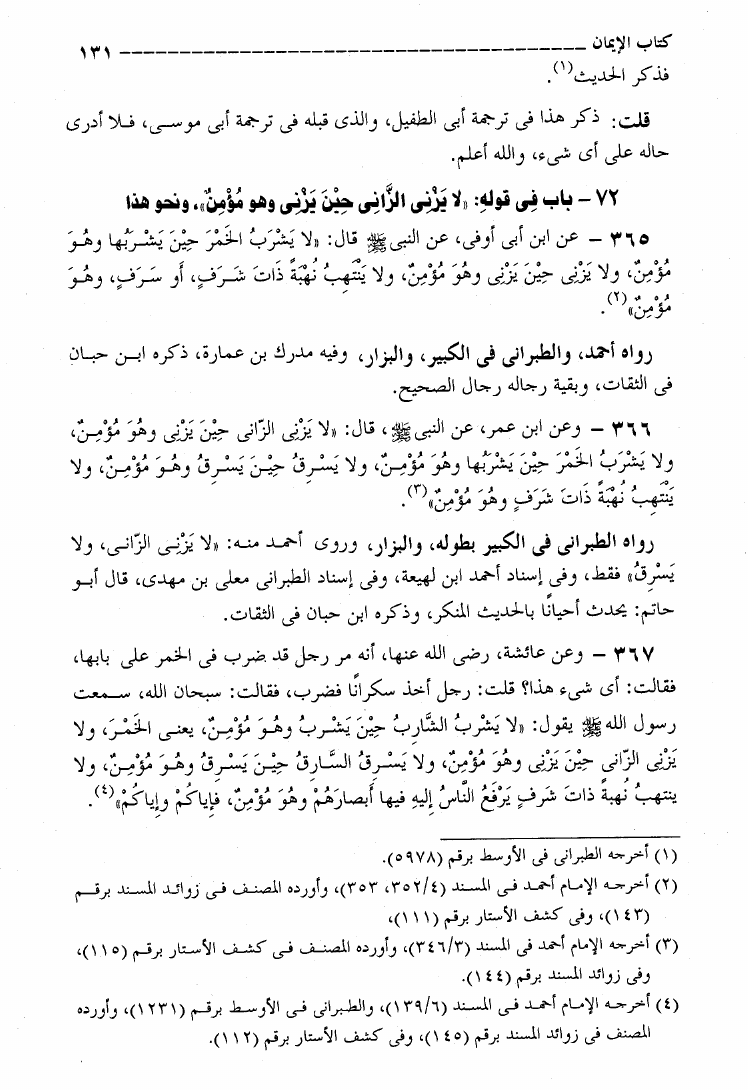 كتاب الإيمان ــــــــــــــــــــــــــــــــــــــــ ١٣١
فذكر الحديث(١).
قلت: ذكر هذا فى ترجمة أبى الطفيل، والذى قبله فى ترجمة أبى موسى، فلا أدرى
حاله على أى شىء، والله أعلم.
٧٢ – باب فى قوله: «لا يَزْنِى الزَّانِى حِيْنَ يَزْنِى وهو مُؤْمِنٌ»، ونحو هذا
٣٦٥ – عن ابن أبى أوفى، عن النبى ﷺ قال: «لا يَشْرَبُ الخَمْرَ حِيْنَ يَشْرَبُها وهُوَ
مُؤْمِنٌ، ولا يَزْنِى حِيْنَ يَزْنِى وهُوَ مُؤْمِنٌ، ولا يَنْتَهِبُ نُهْبَةً ذَاتَ شَرَفٍ، أو سَرَفٍ، وهُوَ
مُؤْمِنٌ»(٢).
رواه أحمد، والطبرانى فى الكبير، والبزار، وفيه مدرك بن عمارة، ذكره ابن حبان
فى الثقات، وبقية رجاله رجال الصحيح.
٣٦٦ – وعن ابن عمر، عن النبى ﷺ، قال: «لا يَزْنِى الزّانى حِيْنَ يَزْنِى وهُوَ مُؤْمِنٌ،
ولا يَشْرَبُ الخَمْرَ حِيْنَ يَشْرَبُها وهُوَ مُؤْمِنٌ، ولا يَسْرِقُ حِيْنَ يَسْرِقُ وهُوَ مُؤْمِنٌ، ولا
يَنْتَهِبُ نُهْبَةً ذَاتَ شَرَفٍ وهُوَ مُؤْمِنٌ»(٣).
رواه الطبرانى فى الكبير بطوله، والبزار، وروى أحمد منه: «لا يَزْنِى الزّانى، ولا
يَسْرِقُ» فقط، وفى إسناد أحمد ابن لهيعة، وفى إسناد الطبرانى معلى بن مهدى، قال أبو
حاتم: يحدث أحيانًا بالحديث المنكر، وذكره ابن حبان فى الثقات.
٣٦٧ – وعن عائشة، رضى الله عنها، أنه مر رجل قد ضرب فى الخمر على بابها،
فقالت: أى شىء هذا؟ قلت: رجل أخذ سكرانًا فضرب، فقالت: سبحان الله، سمعت
رسول الله ﷺ يقول: «لا يَشْرَبُ الشَّارِبُ حِيْنَ يَشْرَبُ وهُوَ مُؤْمِنٌ، يعنى الخَمْرَ، ولا
يَزْنِى الزّانى حِيْنَ يَزْنِى وهُوَ مُؤْمِنٌ، ولا يَسْرِقُ السَّارِقُ حِيْنَ يَسْرِقُ وهُوَ مُؤْمِنٌ، ولا
ينتهبُ نُهبةً ذَاتَ شَرفٍ يَرْفَعُ النَّاسُ إليهِ فيها أَبصارَهُمْ وهُوَ مُؤْمِنٌ، فإياكُمْ وإياكُمْ»(٤).
(١) أخرجه الطبرانى فى الأوسط برقم (٥٩٧٨).
(٢) أخرجه الإمام أحمد فى المسند (٣٥٢/٤، ٣٥٣)، وأورده المصنف فى زوائد المسند برقم
(١٤٣)، وفى كشف الأستار برقم (١١١)،
(٣) أخرجه الإمام أحمد فى المسند (٣٤٦/٣)، وأورده المصنف فى كشف الأستار برقم (١١٥)،
وفى زوائد المسند برقم (١٤٤).
(٤) أخرجه الإمام أحمد فى المسند (١٣٩/٦)، والطبرانى فى الأوسط برقم (١٢٣١)، وأورده
المصنف فى زوائد المسند برقم (١٤٥)، وفى كشف الأستار برقم (١١٢).